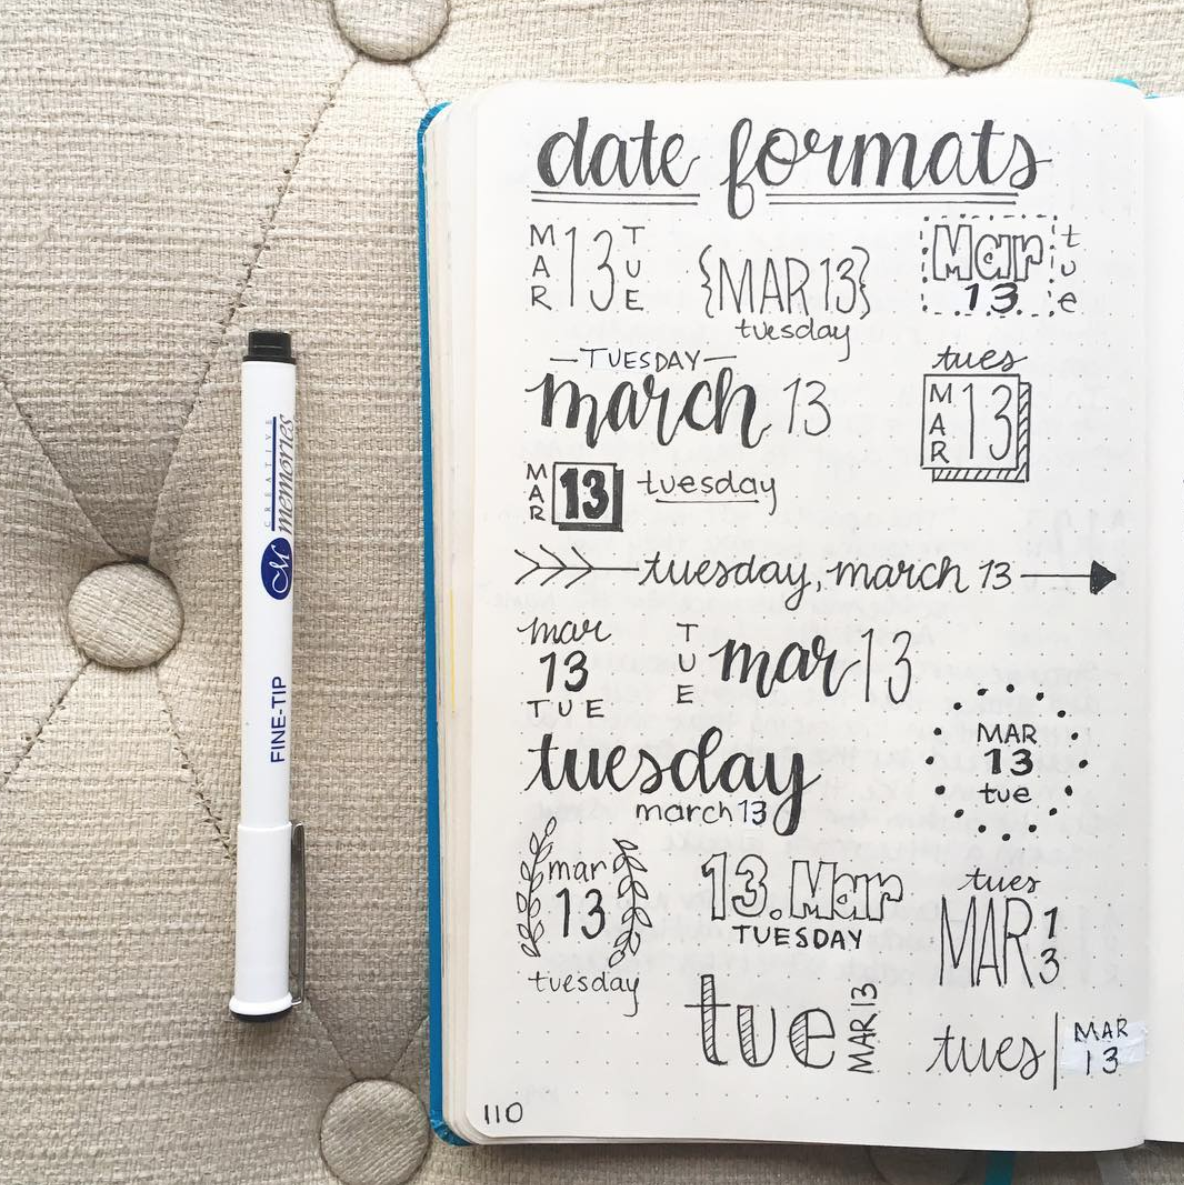 date formats
MAR 13 TUE
{MAR 13}
tuesday
Mar
13
tue
TUESDAY
march 13
tues
MAR 13
MAR 13 tuesday
tuesday, march 13
mar
13
TUE
TUE mar 13
MAR
13
tue
tuesday
march 13
mar
13
tuesday
13. Mar
TUESDAY
tues
MAR 13
tue MAR 13
tues MAR
13
110
CREATIVE
memories
M
FINE-TIP